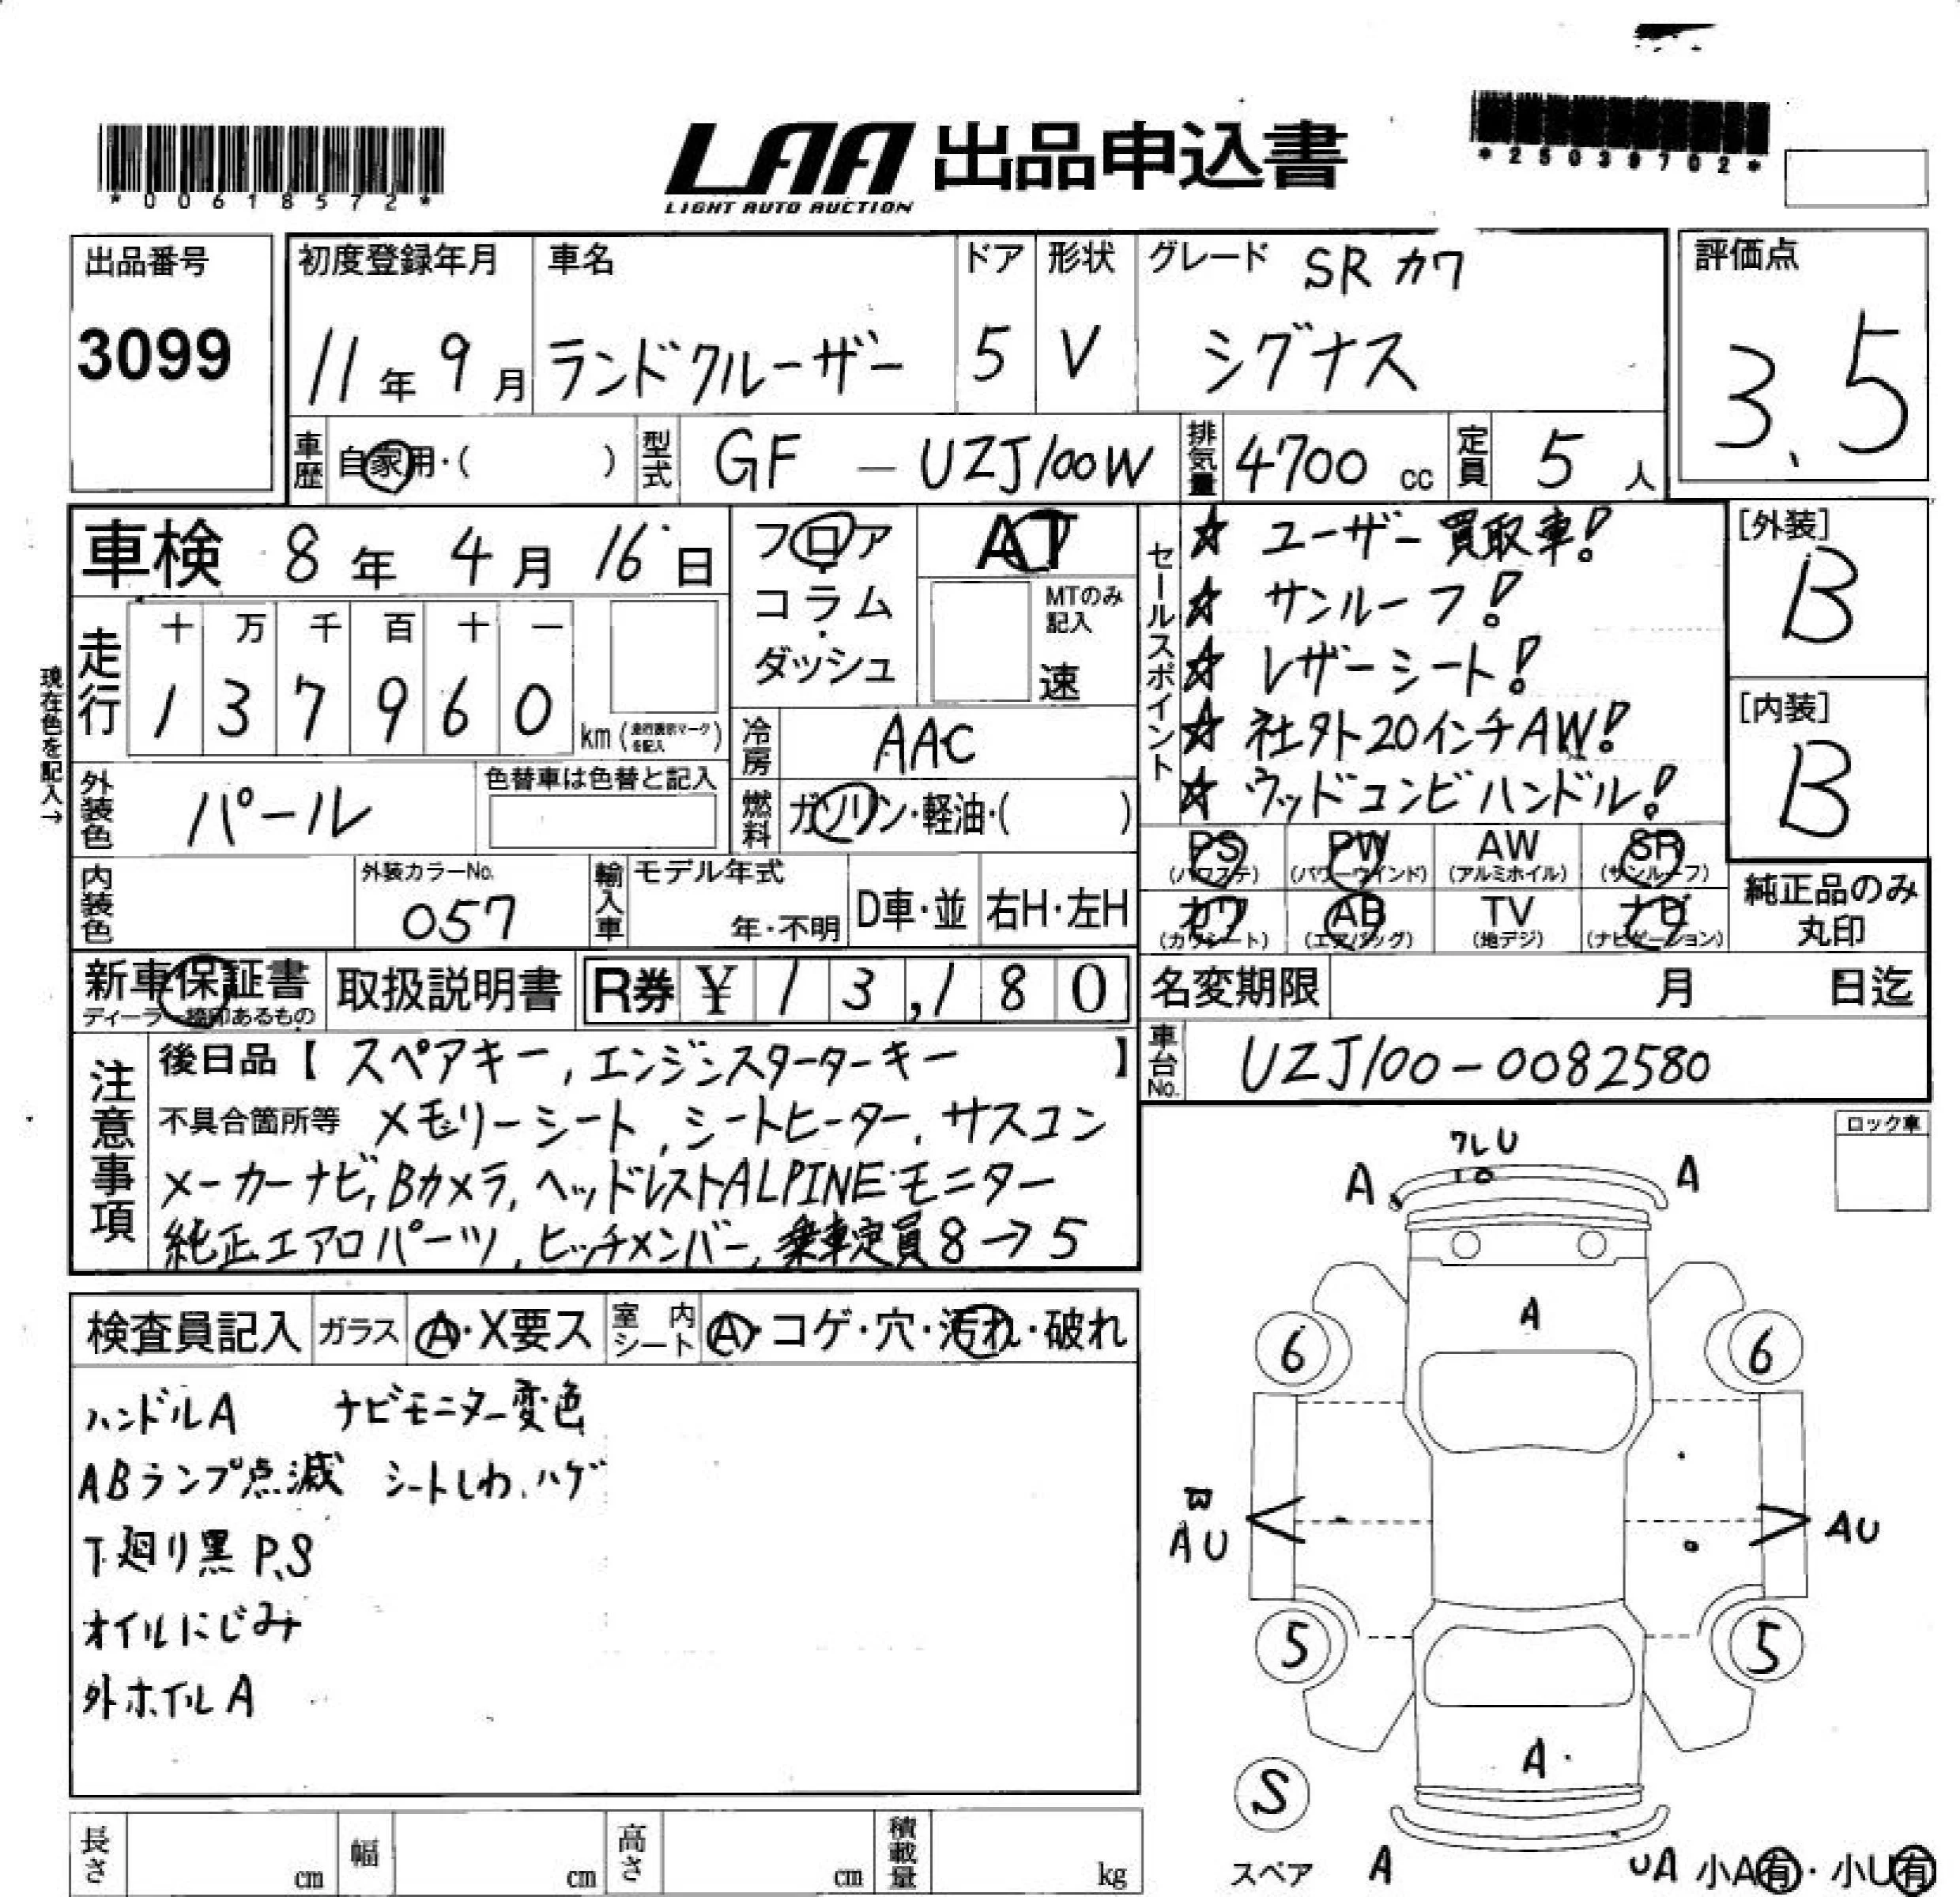 *00618572*
LAA 出品申込書
LIGHT AUTO AUCTION
*25039702*
出品番号
3099
初度登録年月
11年9月
車名
ランドクルーザー
ドア
5
形状
V
グレード SRカワ
シグナス
評価点
3.5
車歴 自家用・( )
型式 GF-UZJ100W
排気量 4700cc
定員 5人
車検 8年4月16日
現在色を記入→
走行
十 万 千 百 十 一
1 3 7 9 6 0
km (走行表示マークを記入)
フロア
コラム
ダッシュ
AT
MTのみ記入
速
冷房 AAC
燃料 ガソリン・軽油・( )
外装色 パール
色替車は色替と記入
内装色
外装カラーNo.
057
輸入車
モデル年式
年・不明
D車・並
右H・左H
セールスポイント
☆ ユーザー買取車!
☆ サンルーフ!
☆ レザーシート!
☆ 社外20インチAW!
☆ ウッドコンビハンドル!
[外装]
B
[内装]
B
PS (パワステ)
PW (パワーウインド)
AW (アルミホイル)
SR (サンルーフ)
カワ (カワシート)
AB (エアバッグ)
TV (地デジ)
ナビ (ナビゲーション)
純正品のみ
丸印
新車保証書
ディーラー捺印あるもの
取扱説明書
R券 ¥13,180
名変期限 月 日迄
車台No. UZJ100-0082580
注意事項
後日品【スペアキー,エンジンスターターキー】
不具合箇所等 メモリーシート,シートヒーター,サスコン
メーカーナビ,Bカメラ,ヘッドレストALPINEモニター
純正エアロパーツ,ヒッチメンバー,乗車定員8→5
検査員記入
ガラス A・X要ス
室内シート A・コゲ・穴・汚れ・破れ
ハンドルA ナビモニター変色
ABランプ点滅 シートしわ.ハゲ
T廻り黒P.S
オイルにじみ
外ホイルA
ロック車
ワレU
A
A
A
6
6
AU
AU
5
5
A
S
スペア
A
UA
小A有・小U有
長さ cm
幅 cm
高さ cm
積載量 kg